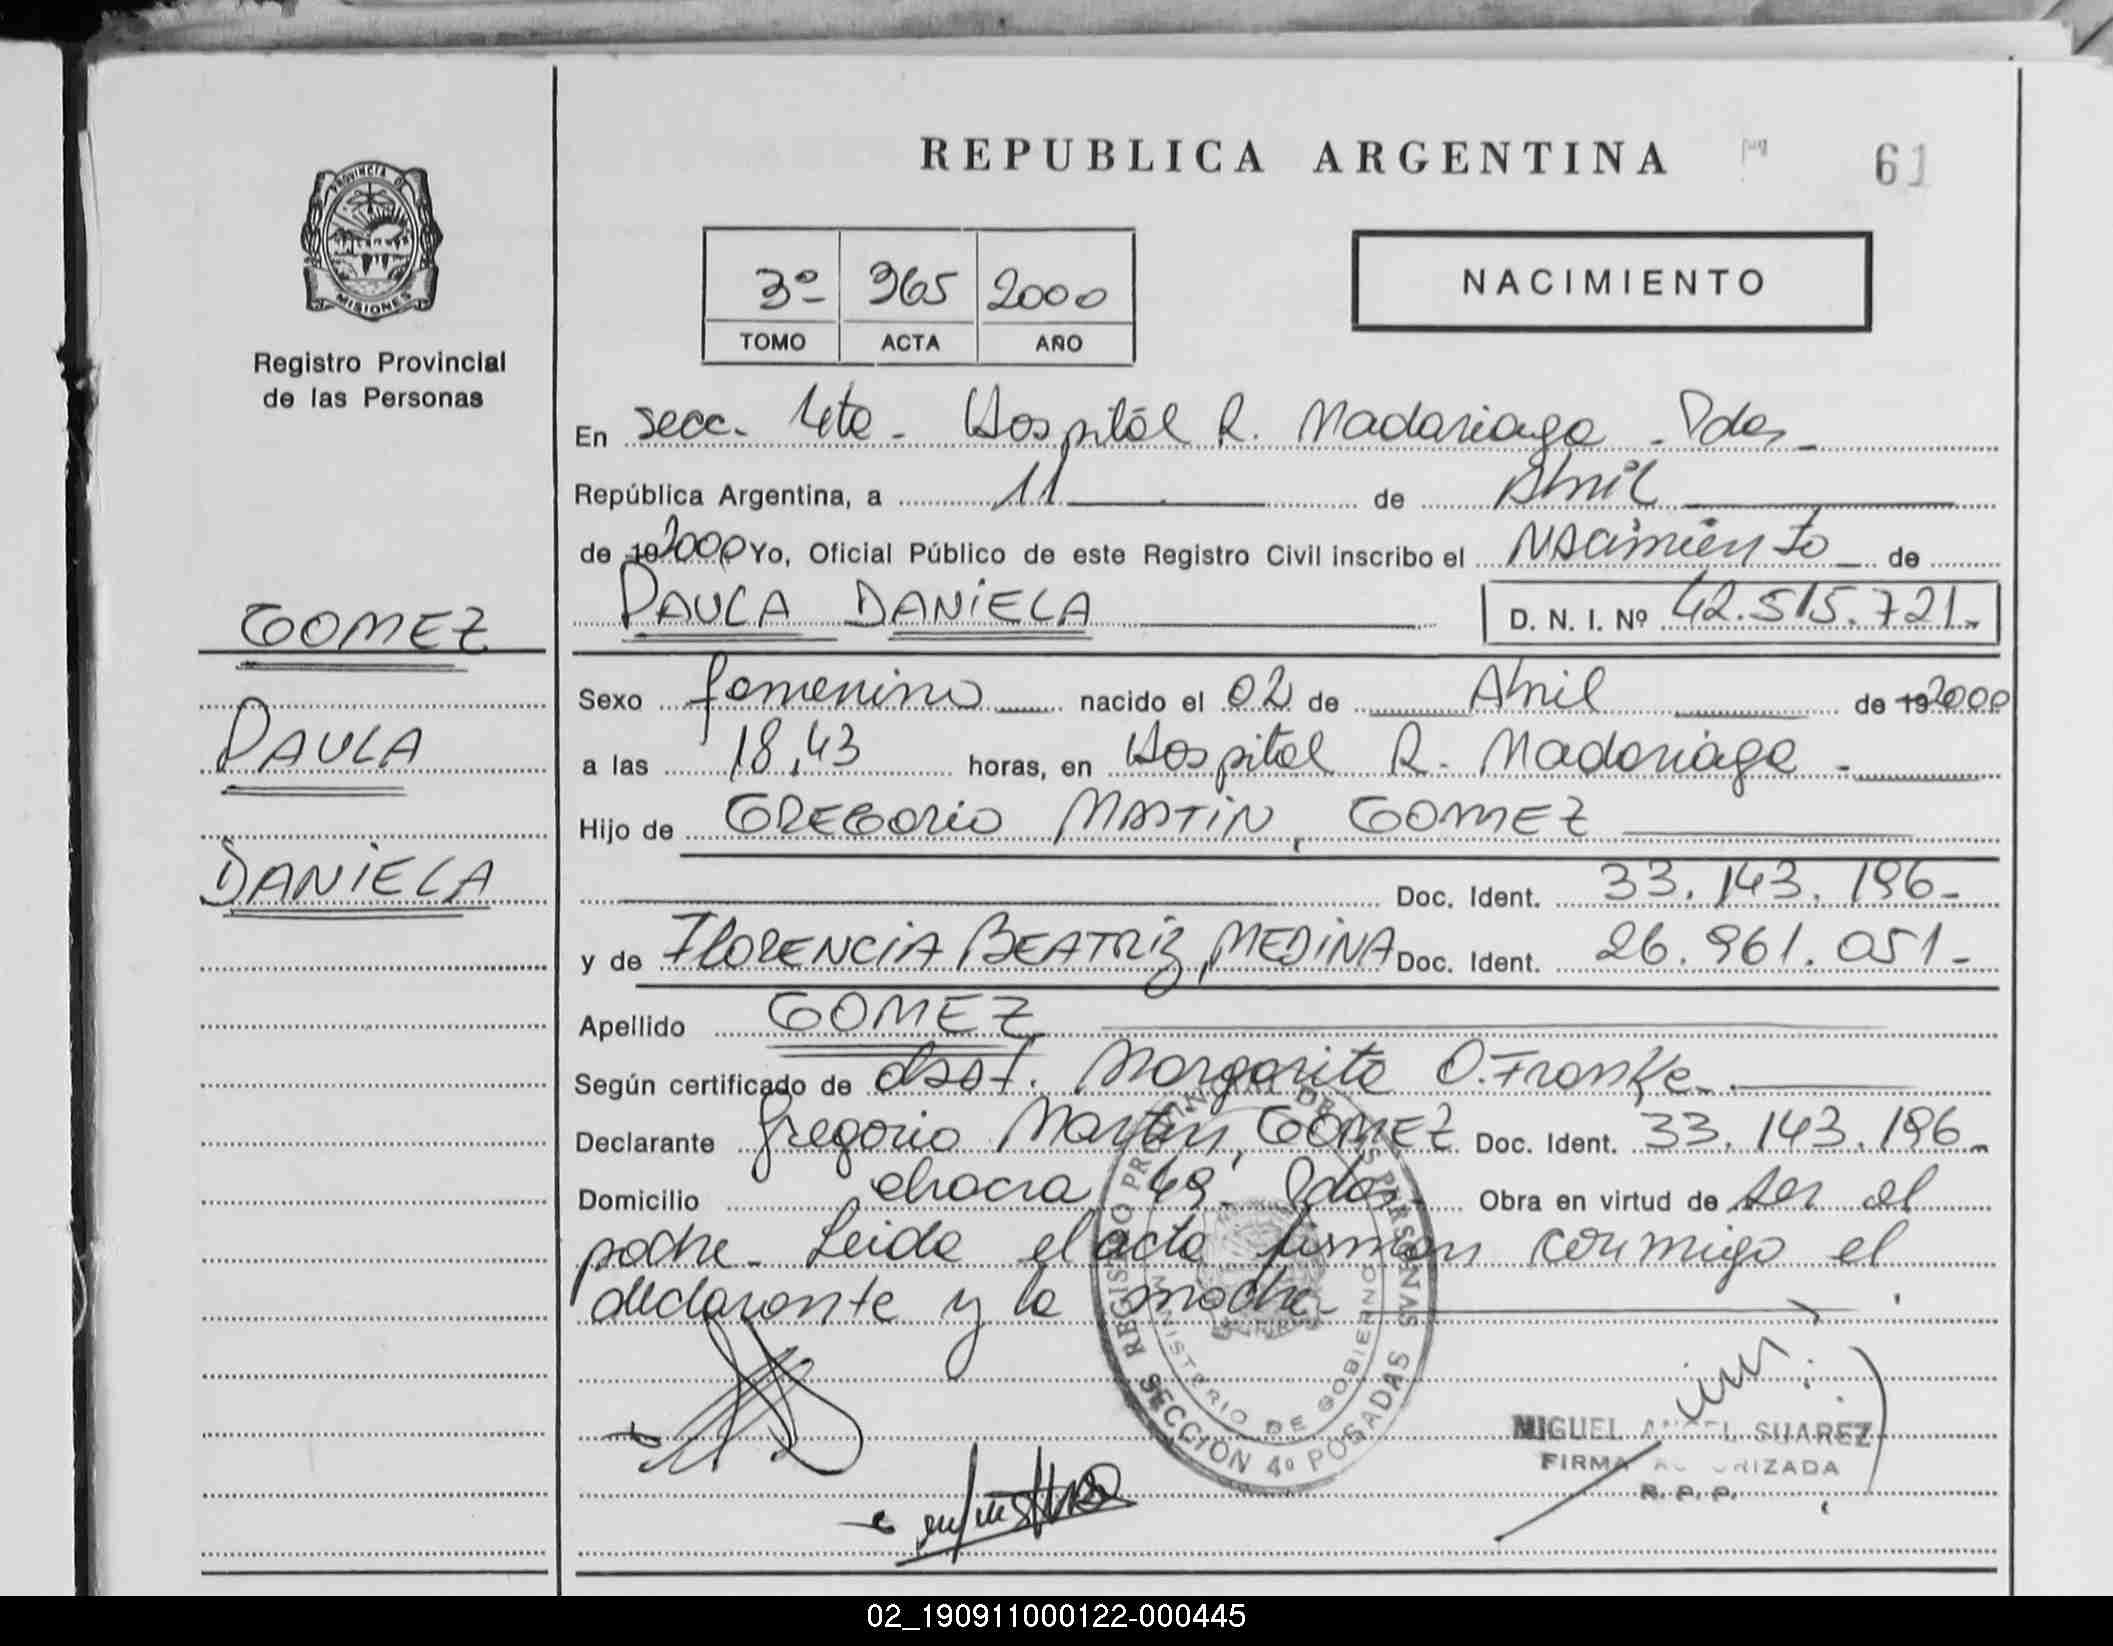 REPUBLICA ARGENTINA
61
PROVINCIA DE
MISIONES
Registro Provincial
de las Personas
3º 365 2000
TOMO ACTA AÑO
NACIMIENTO
En secc. 4ta - Hospital R. Madariaga - Pdas -
República Argentina, a 11 de Abril
de 19 2000 Yo, Oficial Público de este Registro Civil inscribo el Nacimiento de
PAULA DANIELA D. N. I. Nº 42.515.721.-
GOMEZ
PAULA
DANIELA
Sexo femenino nacido el 02 de Abril de 19 2000
a las 18,43 horas, en Hospital R. Madariaga -
Hijo de GREGORIO MARTIN, GOMEZ
Doc. Ident. 33.143.196-
y de FLORENCIA BEATRIZ, MEDINA Doc. Ident. 26.961.051-
Apellido GOMEZ
Según certificado de obst. Margarita O. Franke.-
Declarante Gregorio Martin, GOMEZ Doc. Ident. 33.143.196-
Domicilio chacra 49 - Pdas - Obra en virtud de ser el
padre - Leida el acta firman conmigo el
declarante y la madre -
REGISTRO PROVINCIAL DE LAS PERSONAS
MINISTERIO DE GOBIERNO
SECCION 4º POSADAS
MIGUEL ANGEL SUAREZ
FIRMA AUTORIZADA
R. P. P.
02_190911000122-000445